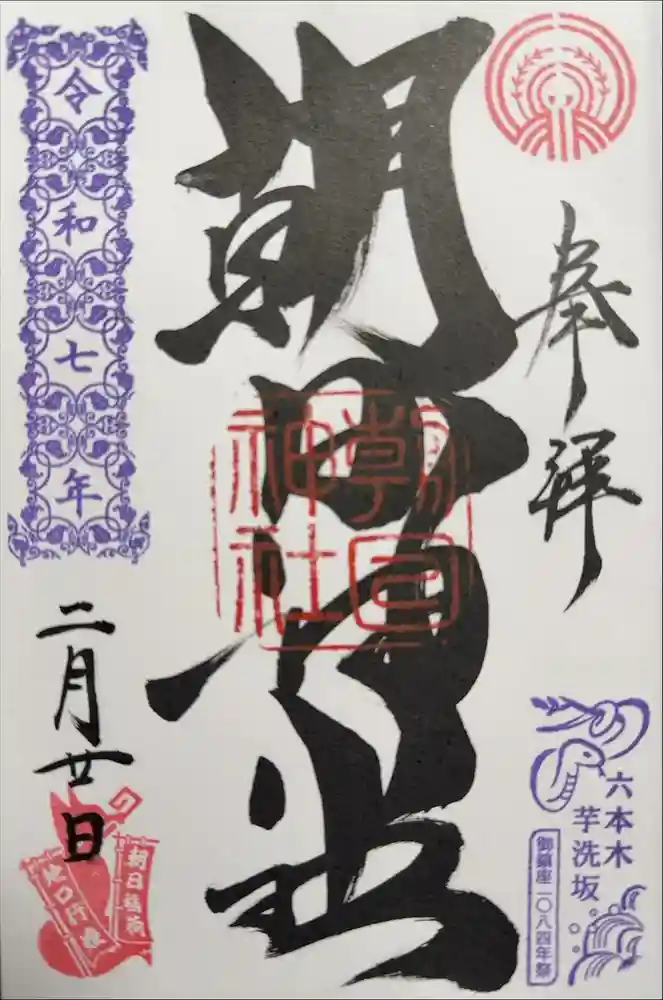 奉拝
六本木
芋洗坂
御鎮座一〇八四年祭
朝日神社
朝日
神社
令和七年
二月廿日
朝日稲荷